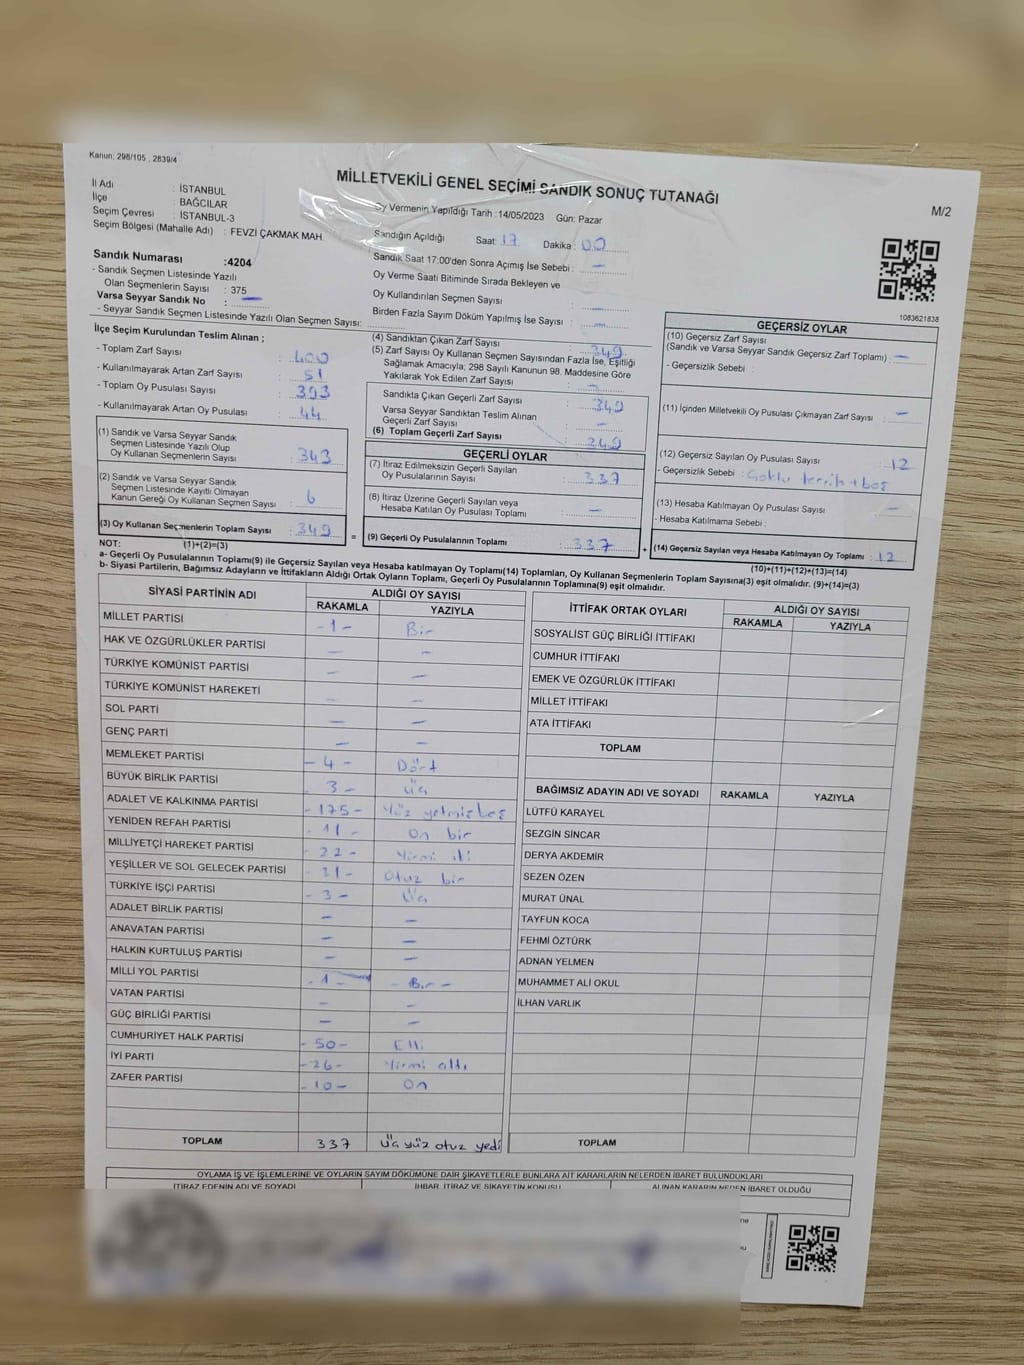 Kanun: 298/105 , 2839/4
MİLLETVEKİLİ GENEL SEÇİMİ SANDIK SONUÇ TUTANAĞI
M/2
İl Adı : İSTANBUL
İlçe : BAĞCILAR
Seçim Çevresi : İSTANBUL-3
Seçim Bölgesi (Mahalle Adı) : FEVZİ ÇAKMAK MAH.
Oy Vermenin Yapıldığı Tarih :14/05/2023 Gün: Pazar
Sandığın Açıldığı Saat: 17 Dakika : 00
Sandık Saat 17:00'den Sonra Açımış İse Sebebi : —
Oy Verme Saati Bitiminde Sırada Bekleyen ve
Oy Kullandırılan Seçmen Sayısı : —
Birden Fazla Sayım Döküm Yapılmış İse Sayısı : —
Sandık Numarası :4204
- Sandık Seçmen Listesinde Yazılı
Olan Seçmenlerin Sayısı : 375
Varsa Seyyar Sandık No : —
- Seyyar Sandık Seçmen Listesinde Yazılı Olan Seçmen Sayısı:
1083621838
İlçe Seçim Kurulundan Teslim Alınan ;
- Toplam Zarf Sayısı : 400
- Kullanılmayarak Artan Zarf Sayısı : 51
- Toplam Oy Pusulası Sayısı : 393
- Kullanılmayarak Artan Oy Pusulası : 44
(1) Sandık ve Varsa Seyyar Sandık
Seçmen Listesinde Yazılı Olup
Oy Kullanan Seçmenlerin Sayısı : 343
(2) Sandık ve Varsa Seyyar Sandık
Seçmen Listesinde Kayıtlı Olmayan
Kanun Gereği Oy Kullanan Seçmen Sayısı : 6
(3) Oy Kullanan Seçmenlerin Toplam Sayısı : 349
(4) Sandıktan Çıkan Zarf Sayısı : 349
(5) Zarf Sayısı Oy Kullanan Seçmen Sayısından Fazla İse, Eşitliği
Sağlamak Amacıyla; 298 Sayılı Kanunun 98. Maddesine Göre
Yakılarak Yok Edilen Zarf Sayısı : —
Sandıkta Çıkan Geçerli Zarf Sayısı : 349
Varsa Seyyar Sandıktan Teslim Alınan
Geçerli Zarf Sayısı : —
(6) Toplam Geçerli Zarf Sayısı : 349
GEÇERLİ OYLAR
(7) İtiraz Edilmeksizin Geçerli Sayılan
Oy Pusulalarının Sayısı : 337
(8) İtiraz Üzerine Geçerli Sayılan veya
Hesaba Katılan Oy Pusulası Toplamı : —
= (9) Geçerli Oy Pusulalarının Toplamı : 337
GEÇERSİZ OYLAR
(10) Geçersiz Zarf Sayısı
(Sandık ve Varsa Seyyar Sandık Geçersiz Zarf Toplamı) : —
- Geçersizlik Sebebi :
(11) İçinden Milletvekili Oy Pusulası Çıkmayan Zarf Sayısı : —
(12) Geçersiz Sayılan Oy Pusulası Sayısı : 12
- Geçersizlik Sebebi : Çoklu tercih + boş
(13) Hesaba Katılmayan Oy Pusulası Sayısı : —
- Hesaba Katılmama Sebebi :
+ (14) Geçersiz Sayılan veya Hesaba Katılmayan Oy Toplamı : 12
NOT: (1)+(2)=(3)
(10)+(11)+(12)+(13)=(14)
a- Geçerli Oy Pusulalarının Toplamı(9) ile Geçersiz Sayılan veya Hesaba katılmayan Oy Toplamı(14) Toplamları, Oy Kullanan Seçmenlerin Toplam Sayısına(3) eşit olmalıdır. (9)+(14)=(3)
b- Siyasi Partilerin, Bağımsız Adayların ve İttifakların Aldığı Ortak Oyların Toplamı, Geçerli Oy Pusulalarının Toplamına(9) eşit olmalıdır.
SİYASİ PARTİNİN ADI ALDIĞI OY SAYISI
RAKAMLA YAZIYLA
MİLLET PARTİSİ -1- Bir
HAK VE ÖZGÜRLÜKLER PARTİSİ — —
TÜRKİYE KOMÜNİST PARTİSİ — —
TÜRKİYE KOMÜNİST HAREKETİ — —
SOL PARTİ — —
GENÇ PARTİ — —
MEMLEKET PARTİSİ -4- Dört
BÜYÜK BİRLİK PARTİSİ 3- Üç
ADALET VE KALKINMA PARTİSİ -175- Yüz yetmişbeş
YENİDEN REFAH PARTİSİ -11- On bir
MİLLİYETÇİ HAREKET PARTİSİ -22- Yirmi iki
YEŞİLLER VE SOL GELECEK PARTİSİ -31- Otuz bir
TÜRKİYE İŞÇİ PARTİSİ -3- Üç
ADALET BİRLİK PARTİSİ — —
ANAVATAN PARTİSİ — —
HALKIN KURTULUŞ PARTİSİ — —
MİLLİ YOL PARTİSİ -1- -Bir-
VATAN PARTİSİ — —
GÜÇ BİRLİĞİ PARTİSİ — —
CUMHURİYET HALK PARTİSİ -50- Elli
İYİ PARTİ -26- Yirmi altı
ZAFER PARTİSİ -10- On
TOPLAM 337 Üç yüz otuz yedi
İTTİFAK ORTAK OYLARI ALDIĞI OY SAYISI
RAKAMLA YAZIYLA
SOSYALİST GÜÇ BİRLİĞİ İTTİFAKI
CUMHUR İTTİFAKI
EMEK VE ÖZGÜRLÜK İTTİFAKI
MİLLET İTTİFAKI
ATA İTTİFAKI
TOPLAM
BAĞIMSIZ ADAYIN ADI VE SOYADI RAKAMLA YAZIYLA
LÜTFÜ KARAYEL
SEZGİN SİNCAR
DERYA AKDEMİR
SEZEN ÖZEN
MURAT ÜNAL
TAYFUN KOCA
FEHMİ ÖZTÜRK
ADNAN YELMEN
MUHAMMET ALİ OKUL
İLHAN VARLIK
TOPLAM
OYLAMA İŞ VE İŞLEMLERİNE VE OYLARIN SAYIM DÖKÜMÜNE DAİR ŞİKAYETLERLE BUNLARA AİT KARARLARIN NELERDEN İBARET BULUNDUKLARI
İTİRAZ EDENİN ADI VE SOYADI İHBAR, İTİRAZ VE ŞİKAYETİN KONUSU ALINAN KARARIN NEDEN İBARET OLDUĞU